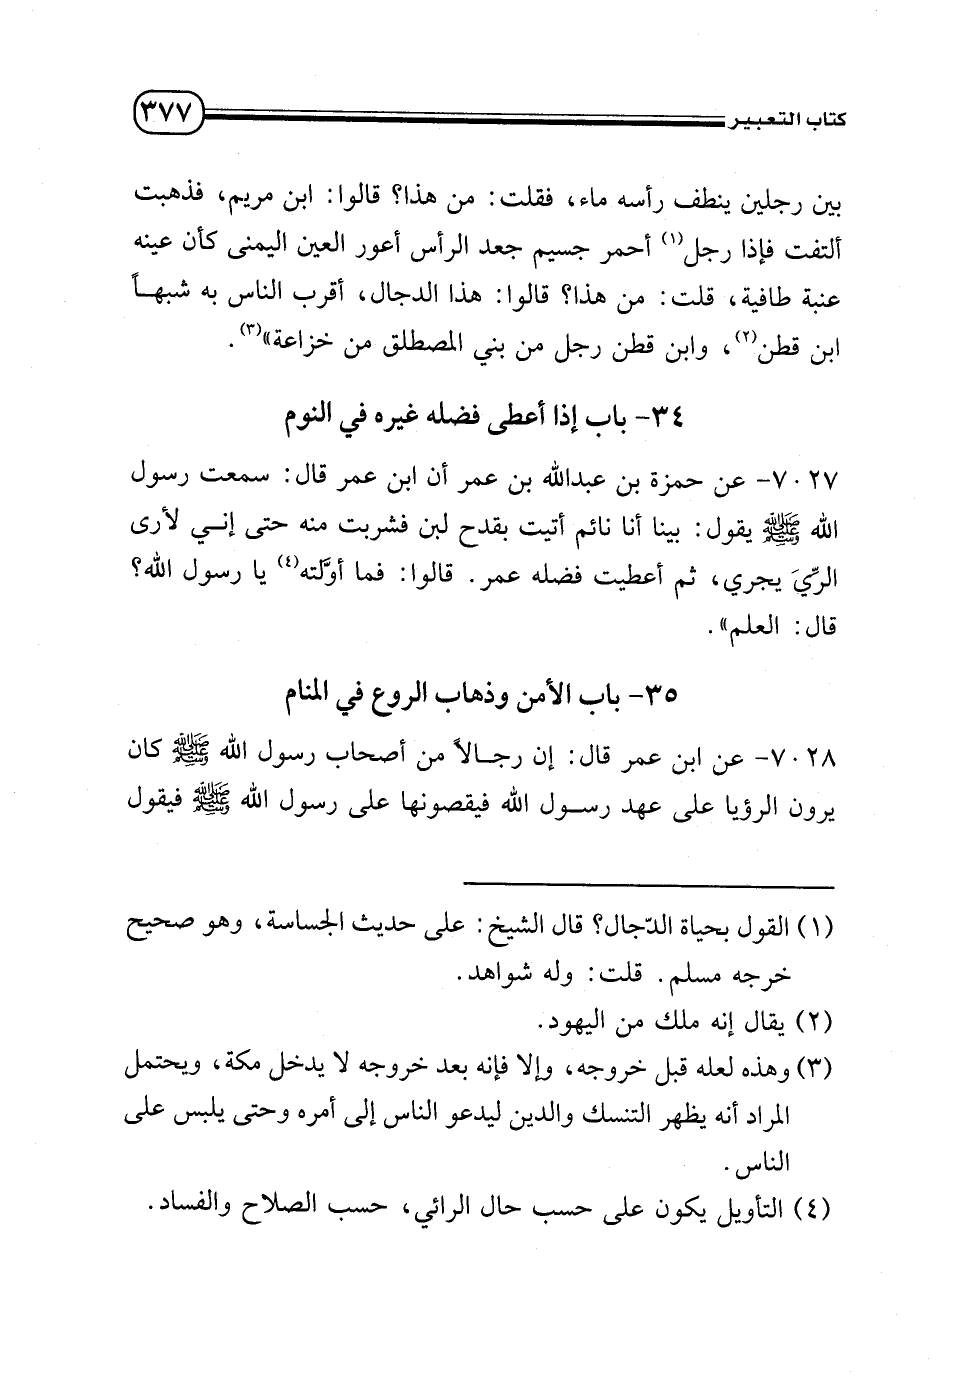 كتاب التعبير ٣٧٧
بين رجلين ينطف رأسه ماء، فقلت: من هذا؟ قالوا: ابن مريم، فذهبت
ألتفت فإذا رجل(١) أحمر جسيم جعد الرأس أعور العين اليمنى كأن عينه
عنبة طافية، قلت: من هذا؟ قالوا: هذا الدجال، أقرب الناس به شبهـاً
ابن قطن(٢)، وابن قطن رجل من بني المصطلق من خزاعة»(٣).
٣٤- باب إذا أعطى فضله غيره في النوم
٧٠٢٧- عن حمزة بن عبدالله بن عمر أن ابن عمر قال: سمعت رسول
الله ﷺ يقول: بينا أنا نائم أتيت بقدح لبن فشربت منه حتى إنـي لأرى
الرِّيَ يجري، ثم أعطيت فضله عمر. قالوا: فما أوَّلته(٤) يا رسول الله؟
قال: العلم».
٣٥- باب الأمن وذهاب الروع في المنام
٧٠٢٨- عن ابن عمر قال: إن رجـالاً من أصحاب رسول الله ﷺ كان
يرون الرؤيا على عهد رسـول الله فيقصونها على رسول الله ﷺ فيقول
(١) القول بحياة الدّجال؟ قال الشيخ: على حديث الجساسة، وهو صحيح
خرجه مسلم. قلت: وله شواهد.
(٢) يقال إنه ملك من اليهود.
(٣) وهذه لعله قبل خروجه، وإلا فإنه بعد خروجه لا يدخل مكة، ويحتمل
المراد أنه يظهر التنسك والدين ليدعو الناس إلى أمره وحتى يلبس على
الناس.
(٤) التأويل يكون على حسب حال الرائي، حسب الصلاح والفساد.